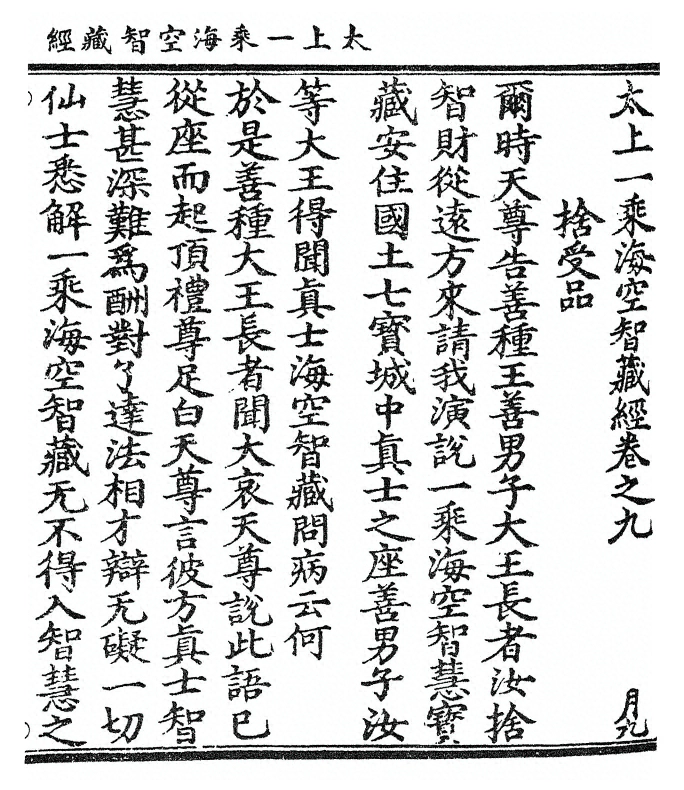 太上一乘海空智藏經
太上一乘海空智藏經卷之九
月九
捨受品
爾時天尊告善種王善男子大王長者汝捨
智財從遠方來請我演說一乘海空智慧寶
藏安住國土七寶城中眞士之座善男子汝
等大王得聞眞士海空智藏問病云何
於是善種大王長者聞大哀天尊說此語已
從座而起頂禮尊足白天尊言彼方眞士智
慧甚深難爲酬對了達法相才辯无礙一切
仙士悉解一乘海空智藏无不得入智慧之